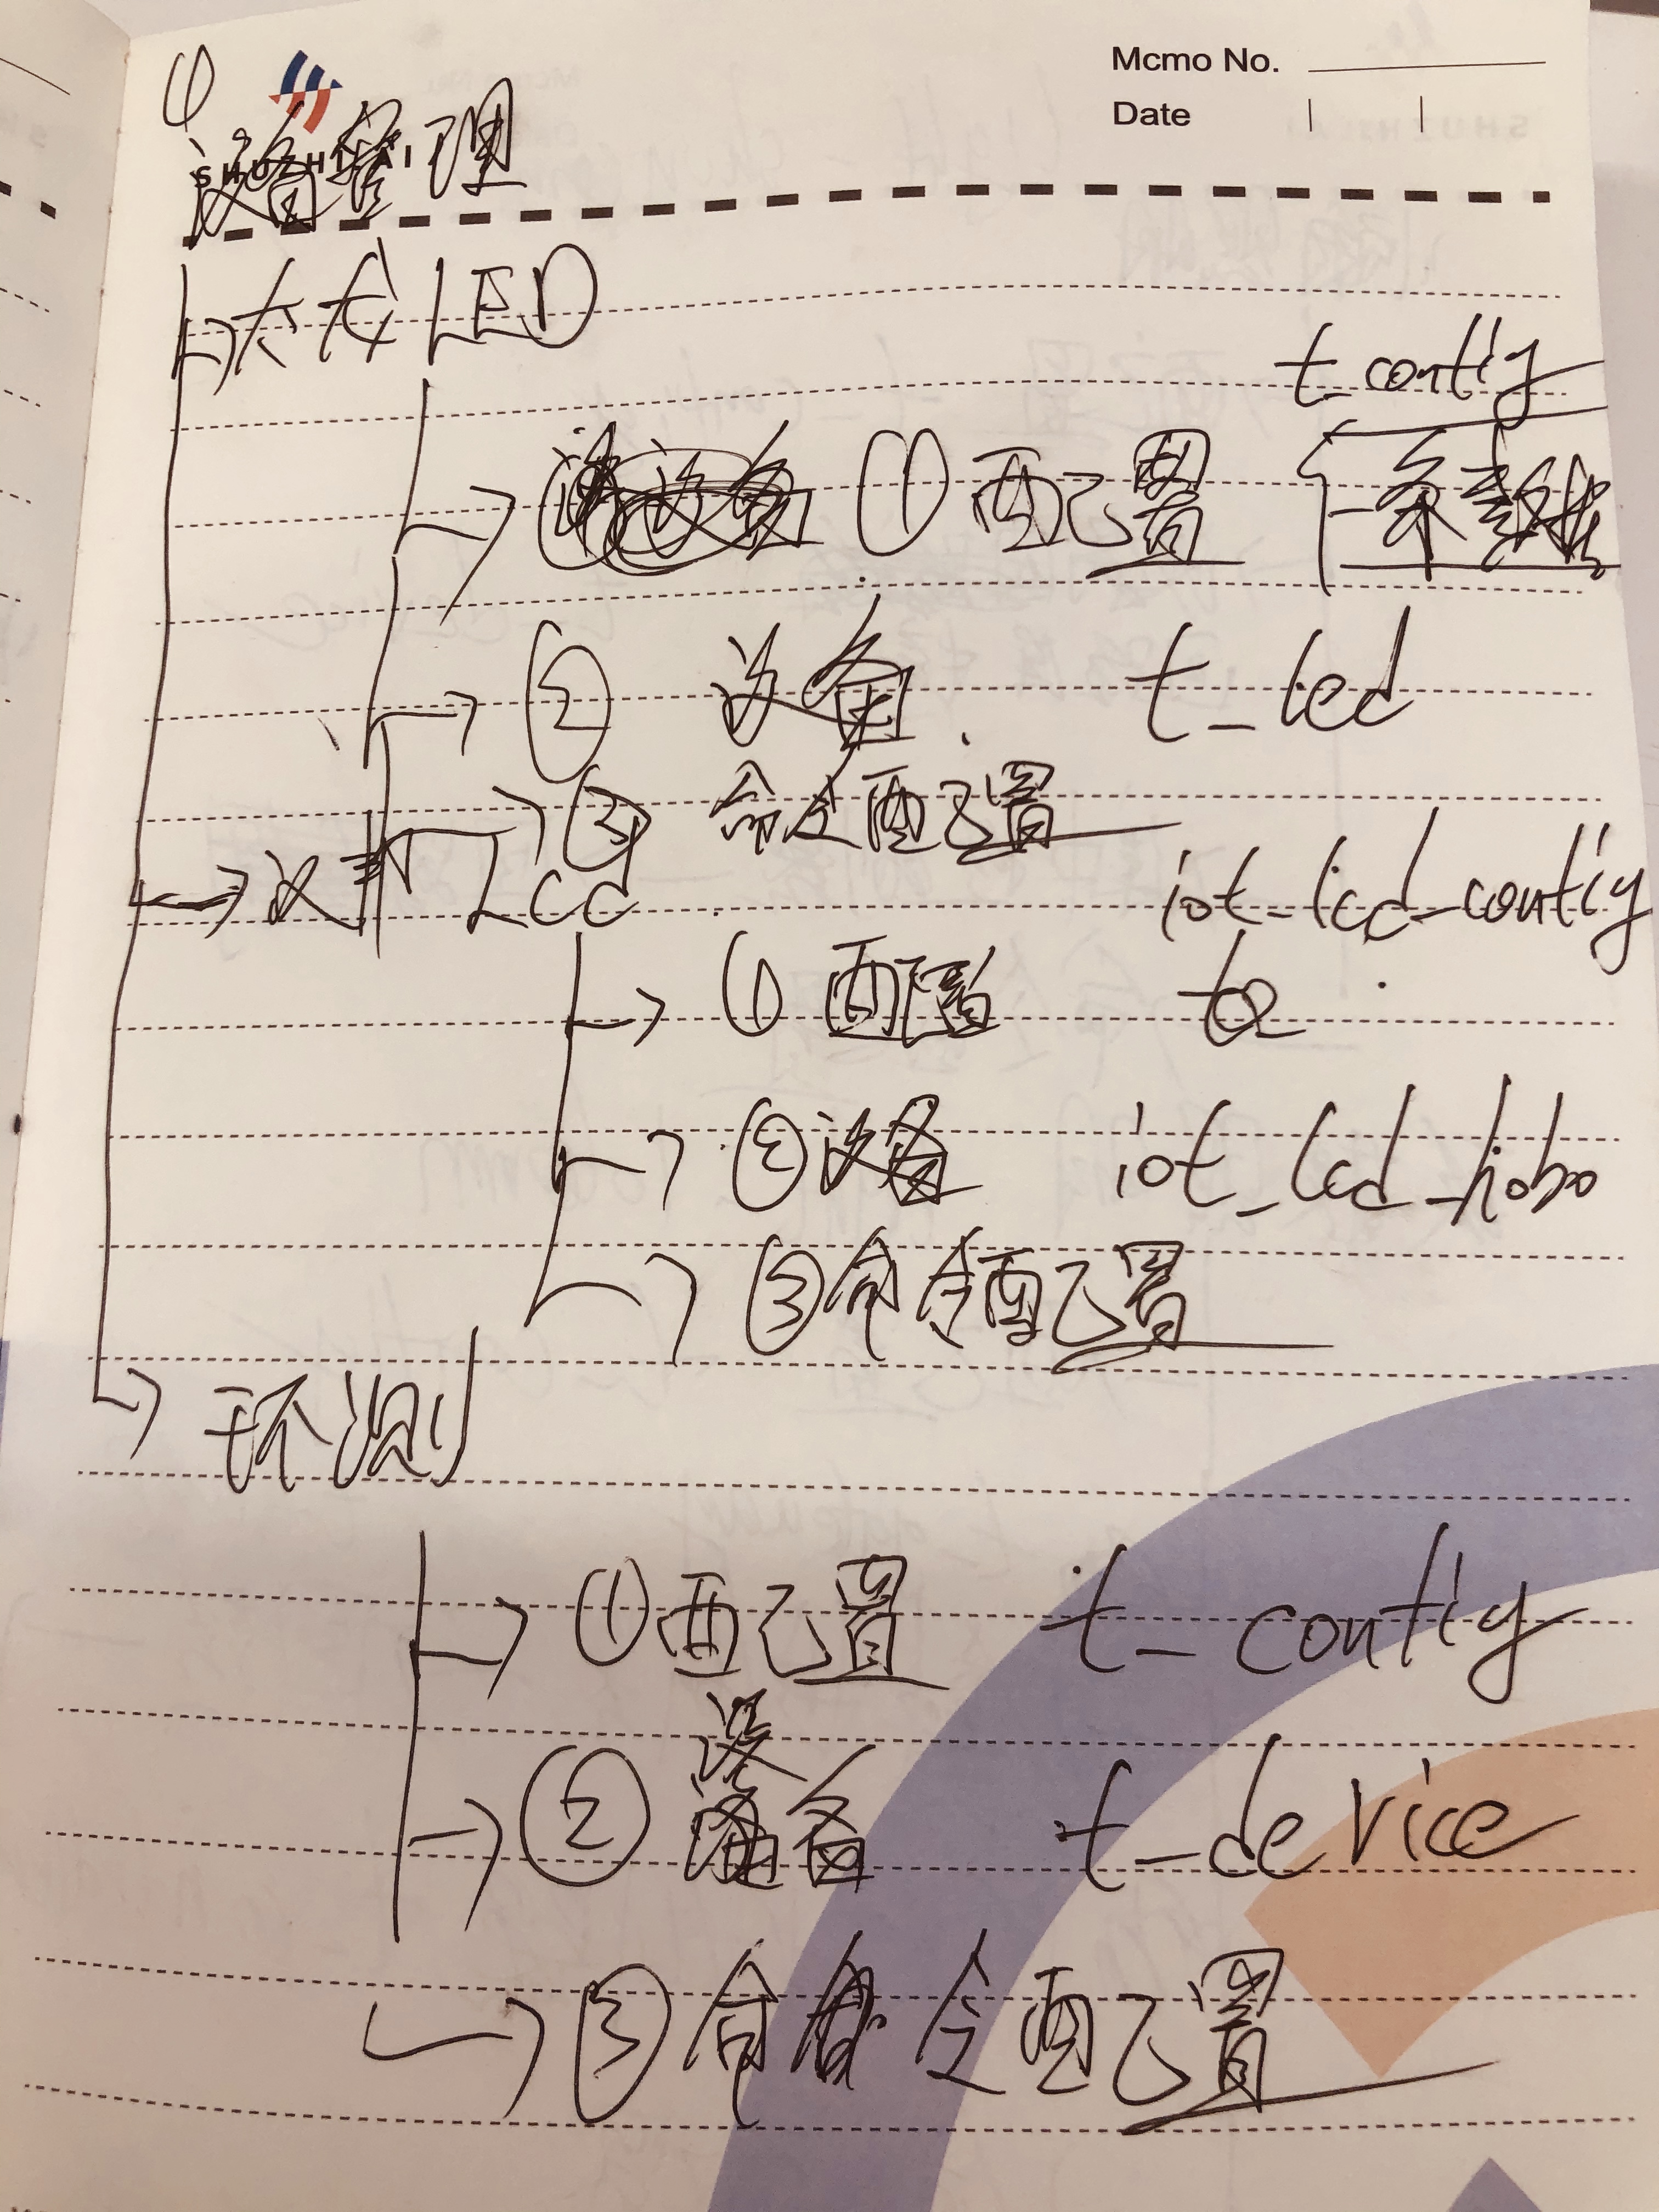 Mcmo No.
Date
①
SHUZHI AI
设备管理
大友 LED
t_config
① 配置 一条数据
② 设备 t_led
③ 命令配置
Lcd iot_lcd_config
① 配置
② 设备 iot_lcd_hobo
③ 命令配置
环测
① 配置 t_config
② 设备 t_device
③ 命令配置